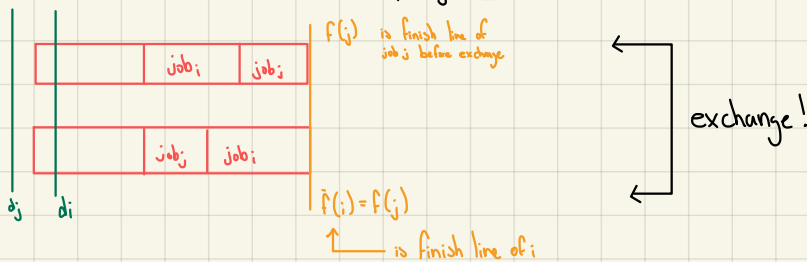 f(j) is finish line of
job j before exchange
job i job j
exchange!
job j job i
dj di
f̄(i) = f(j)
is finish line of i